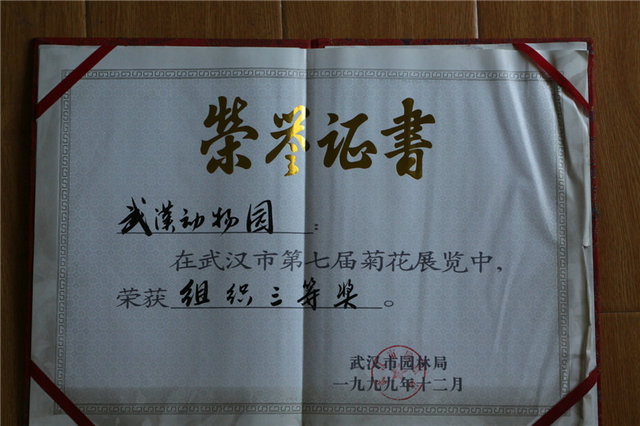 荣誉证书
武漢动物园：
在武汉市第七届菊花展览中，
荣获组织三等奖。
武汉市园林局
一九九九年十二月